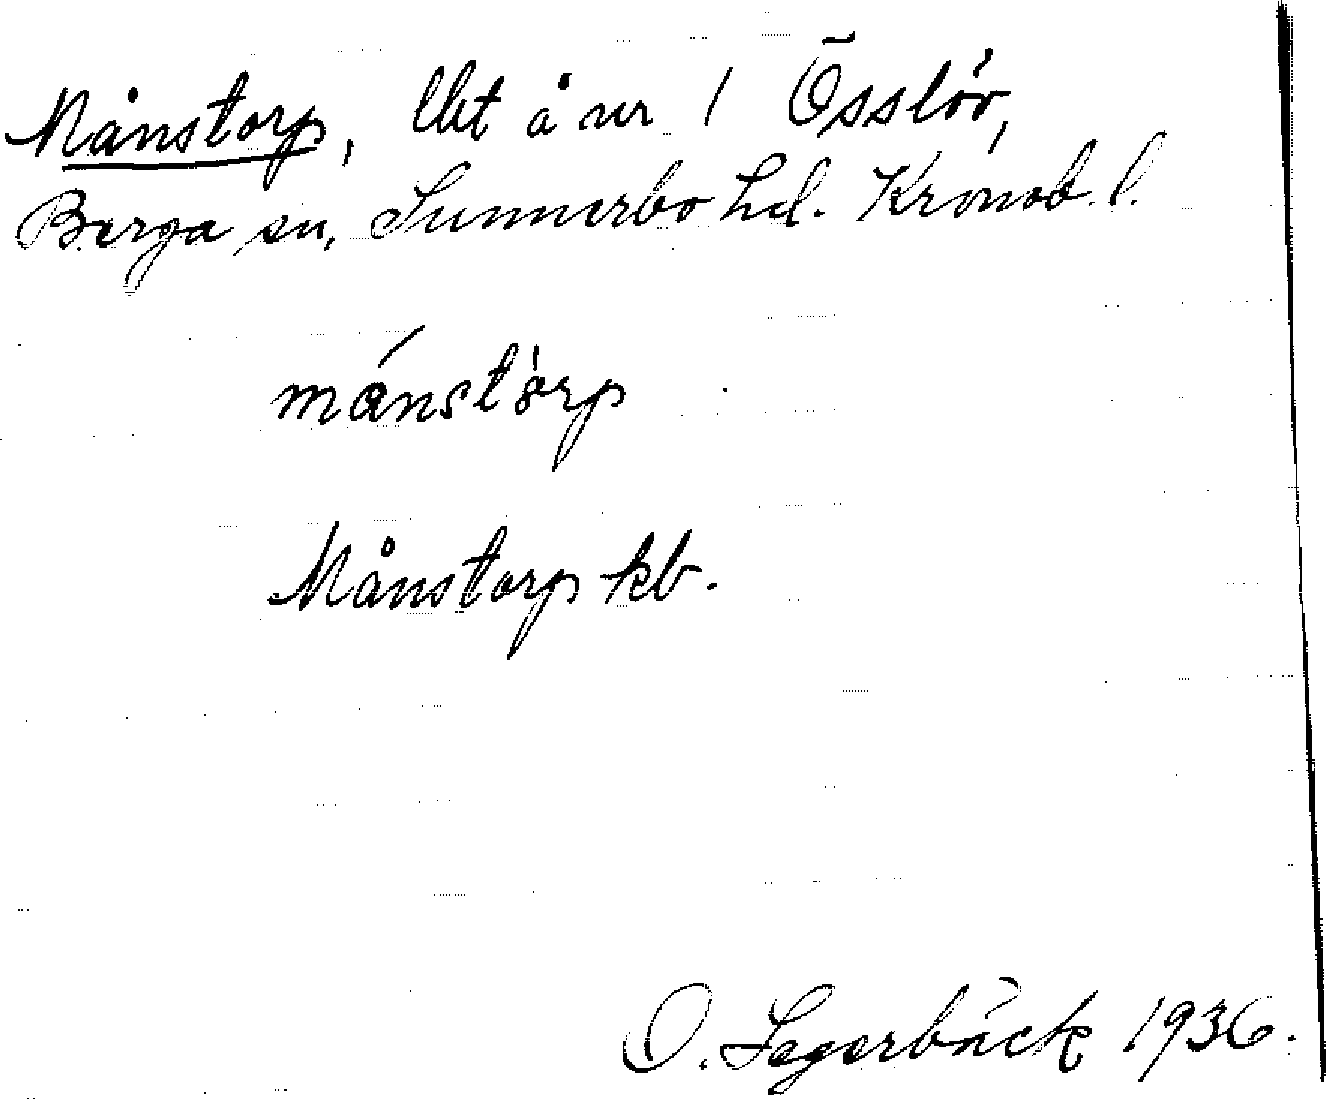 Månstorp, lht å nr 1 Össlöv,
Berga sn, Sunnerbo hd. Kronob. l.
mánstòrp
Månstorp kb.
O. Segerbäck 1936.